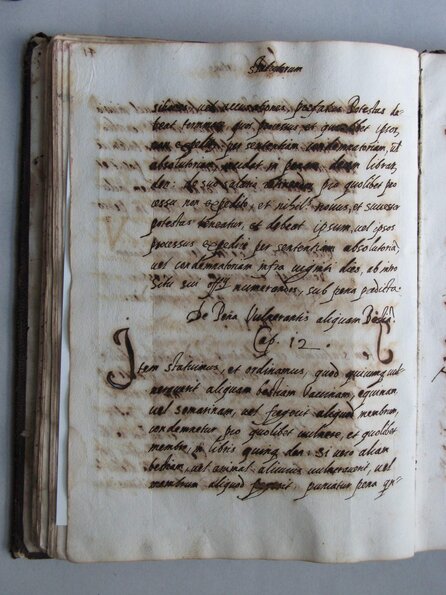 Statutorum
sitione, vel accusatione prefatus Potestas de
beat formare, quos processus et quemlibet ipsor,
non expedire per sententiam condemnatoriam, vel
absolutoriam, incidat in penam decem librar,
den: de suo salario pro quolibet pro
cessu non expedito, et nihil novus, et successor
potestas teneatur, et debeat ipsum, vel ipsos
processus expedire per sententiam absolutoria,
vel condemnatoriam infra viginti dies, ab intro
itu sui off numerandos, sub pena predicta.
De Pena Vulnerantis aliquam Besti
Cap. 12.
Item statuimus, et ordinamus, quod quicumq vul
neraverit aliquam bestiam Vacinam, equinam
vel somarinam, vel fregerit aliquod membrum,
condemnetur pro quolibet vulnere, et quolibet
membro, in libris quinq den: si vero aliam
bestiam, vel animal alicuius vulneraverit, vel
membrum aliquod fregerit, puniatur pena